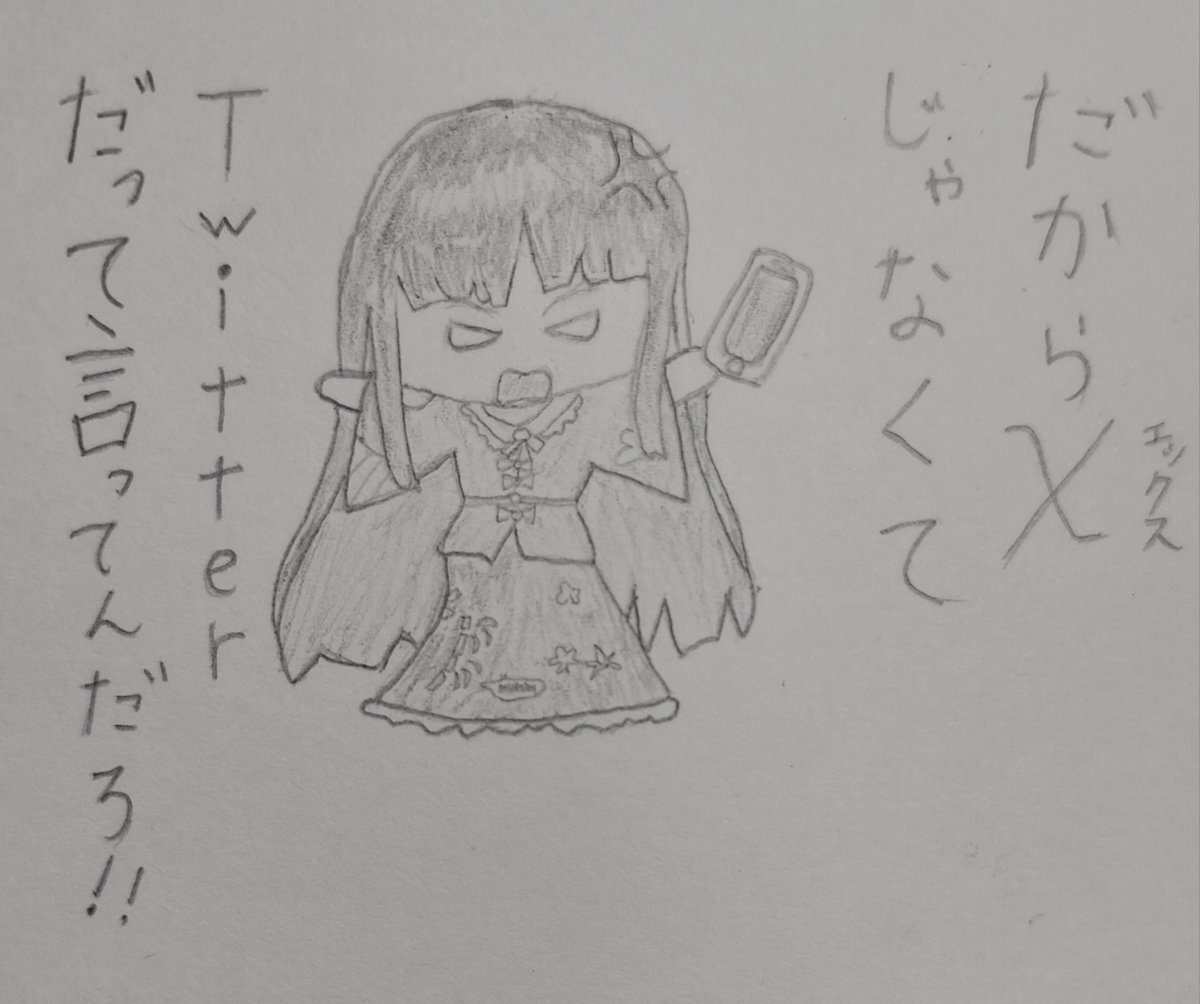 だからX
エックス
じゃなくて
Twitter
だって言ってんだろ!!